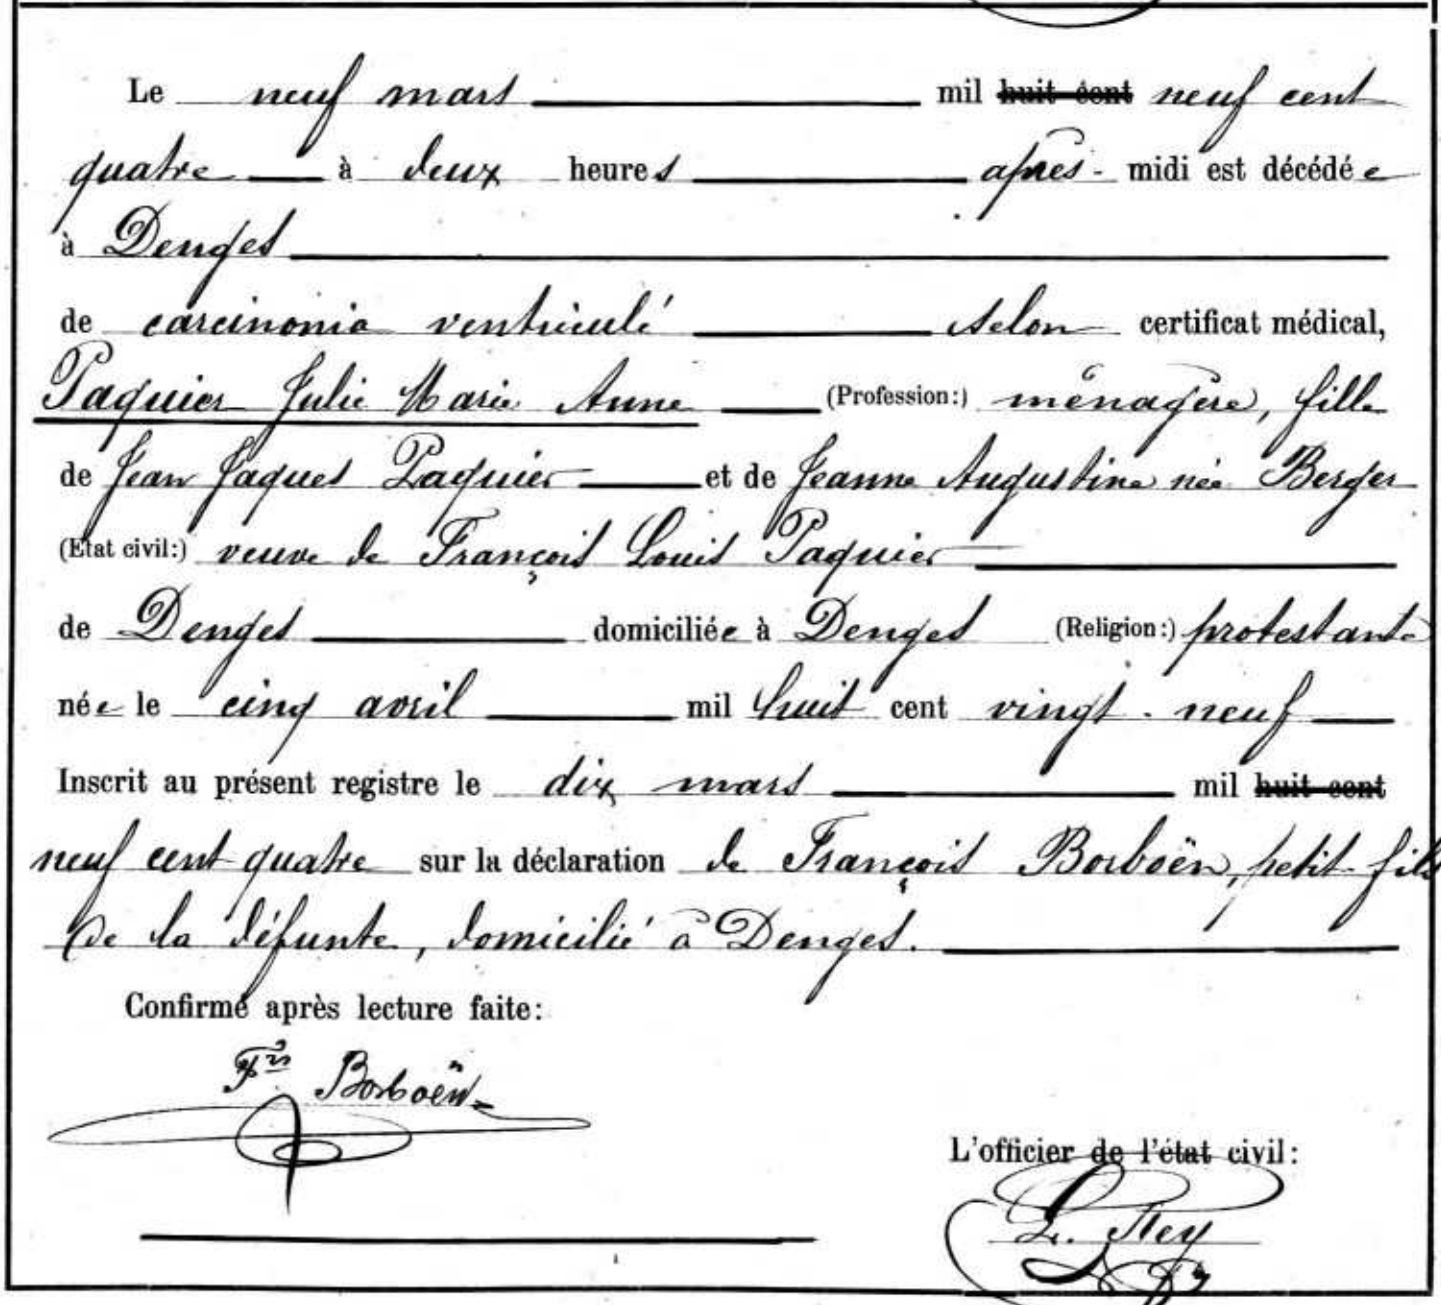 Le neuf mars mil huit cent neuf cent
quatre à deux heures après-midi est décédée
à Denges
de carcinonia ventriculé selon certificat médical,
Paquier Julie Marie Anne (Profession:) ménagère, fille
de Jean Jaques Paquier et de Jeanne Augustine née Berger
(Etat civil:) veuve de François Louis Paquier
de Denges domiciliée à Denges (Religion:) protestante
née le cinq avril mil huit cent vingt-neuf
Inscrit au présent registre le dix mars mil huit cent
neuf cent quatre sur la déclaration de François Borboën, petit-fils
de la défunte, domicilié à Denges.
Confirmé après lecture faite:
Fçs Borboën
L'officier de l'état civil: